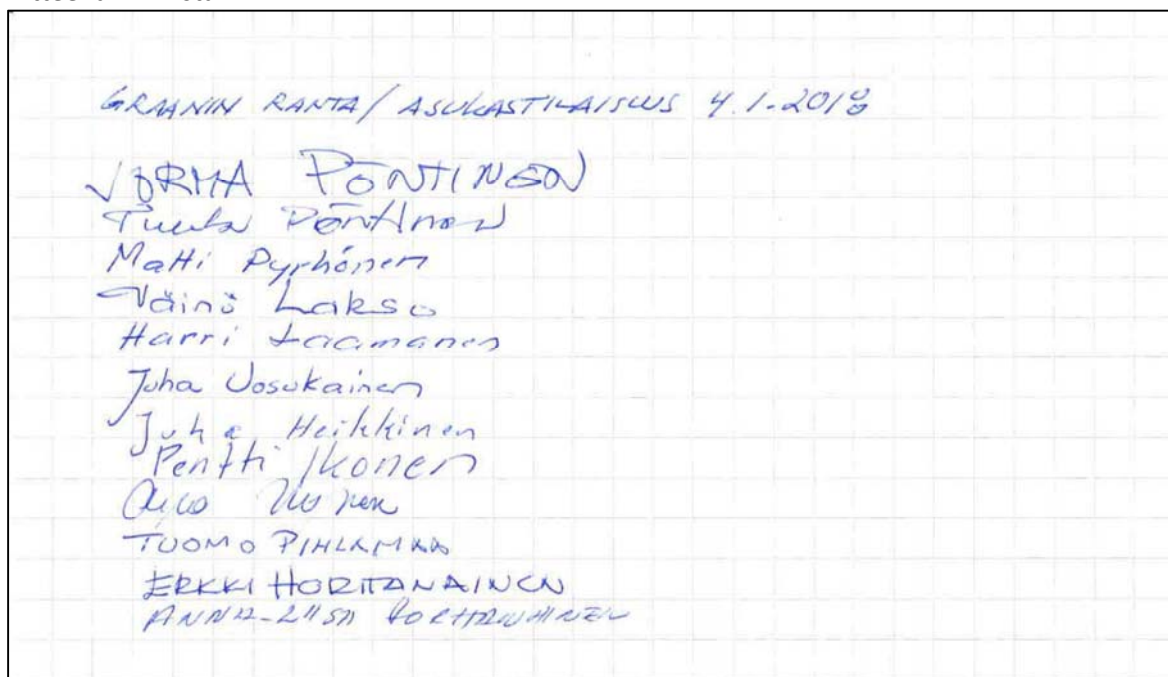 GRAANIN RANTA / ASUKASTILAISUUS 4.1.2018
JORMA PÖNTINEN
Tuula Pöntinen
Matti Pyrhönen
Väinö Lakso
Harri Laamanen
Juha Uosukainen
Juha Heikkinen
Pentti Ikonen
TUOMO PIHLAMAA
ERKKI HORTTANAINEN
ANNA-LIISA HORTTANAINEN